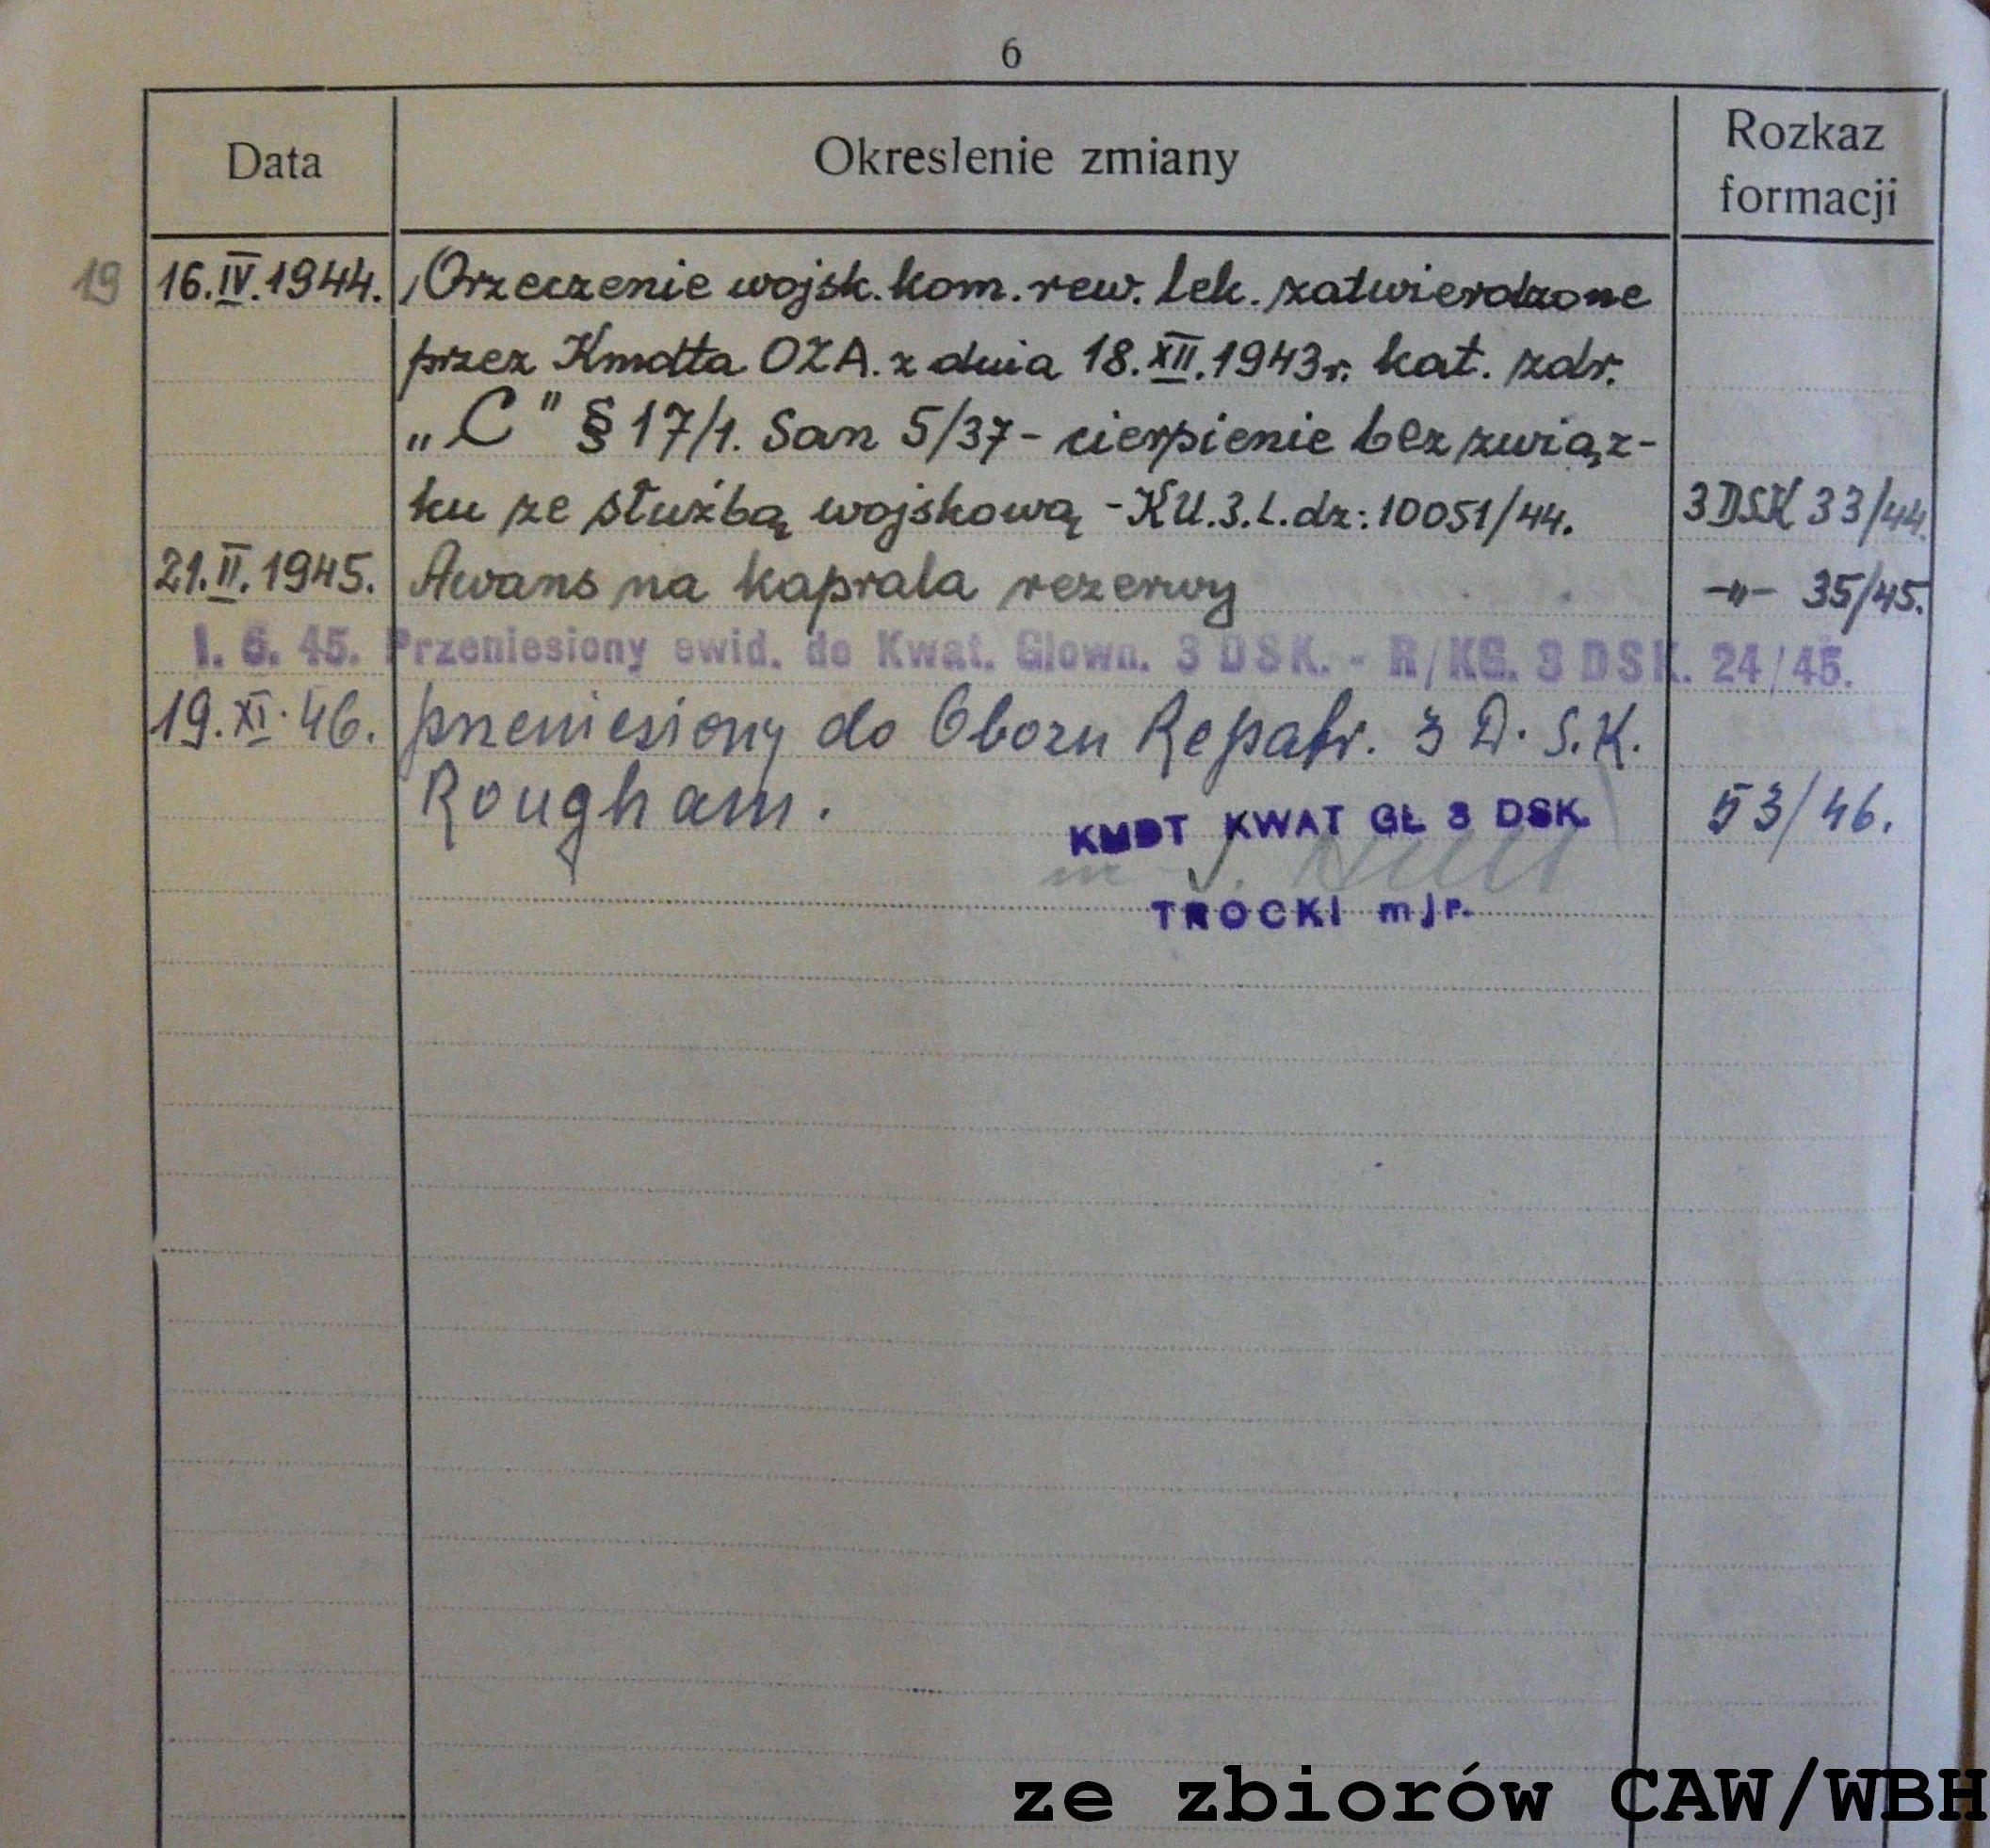 6
Data Okreslenie zmiany Rozkaz formacji
19 16.IV.1944. Orzeczenie wojsk. kom. rew. lek. zatwierdzone
przez Kmdta OZA. z dnia 18.XII.1943r. kat. zdr.
„C" § 17/1. San 5/37 - cierpienie bez związ-
ku ze służbą wojskową - KU.3.L.dz: 10051/44. 3 DSK 33/44.
21.II.1945. Awans na kaprala rezerwy -"- 35/45.
1. 5. 45. Przeniesiony ewid. do Kwat. Glown. 3 DSK. - R/KG. 3 DSK. 24/45.
19.XI.46. przeniesiony do Obozu Repatr. 3 D.S.K.
Rougham. 53/46.
KMDT KWAT GŁ 3 DSK
TROCKI mjr.
ze zbiorów CAW/WBH